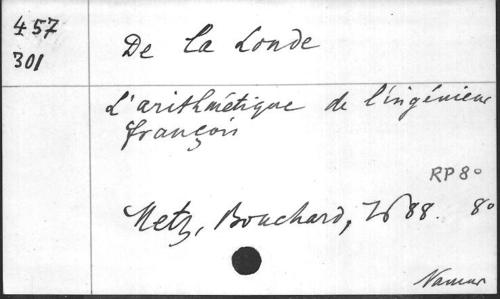 457
301
De la Londe
L'arithmétique de l'ingénieur
françois
RP 8º
Metz, Bouchard, 1688. 8º
Namur